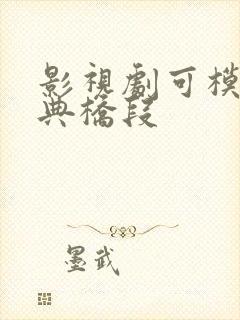 影視劇可模
典橋段
墨武